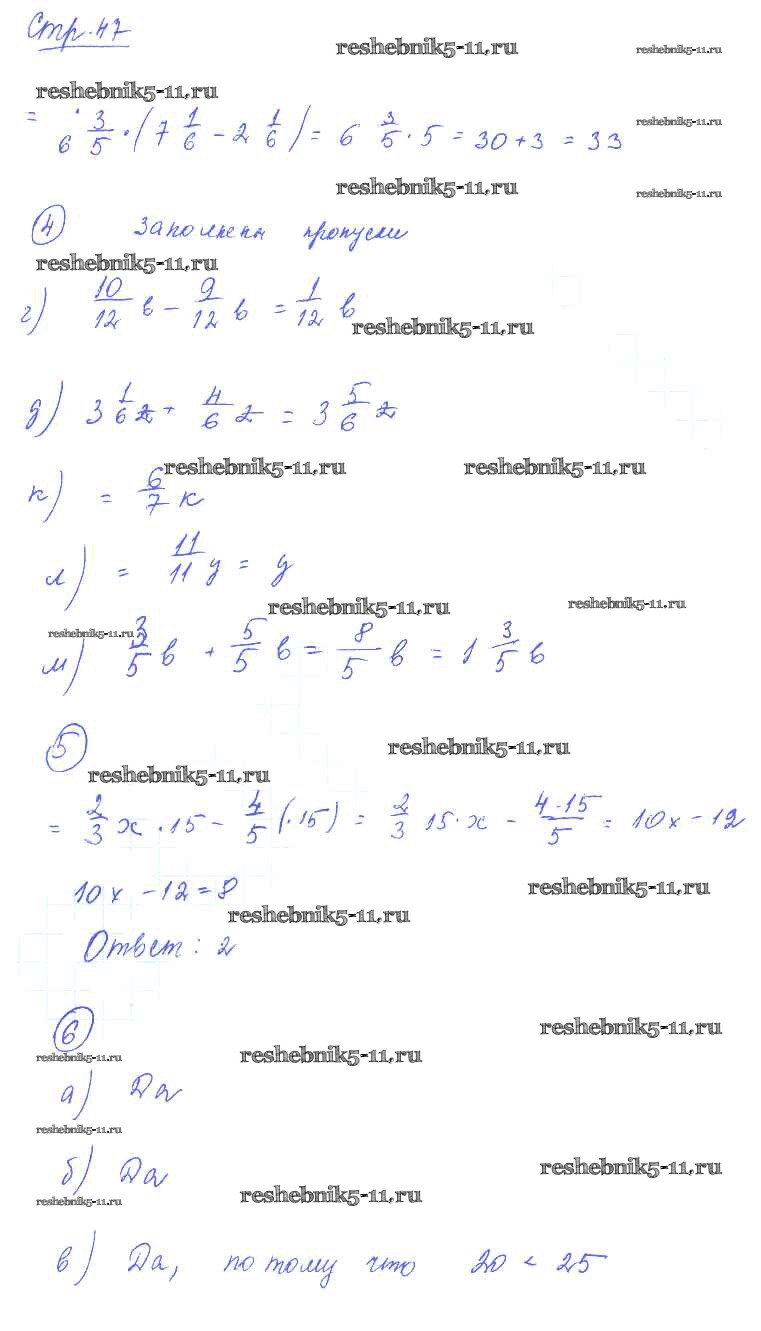 Стр. 47
reshebnik5-11.ru reshebnik5-11.ru
reshebnik5-11.ru
= 6 3/5 · (7 1/6 - 2 1/6) = 6 3/5 · 5 = 30 + 3 = 33
reshebnik5-11.ru
reshebnik5-11.ru reshebnik5-11.ru
4 Заполнены пропуски
reshebnik5-11.ru
г) 10/12 в - 9/12 в = 1/12 в
reshebnik5-11.ru
д) 3 1/6 z + 4/6 z = 3 5/6 z
reshebnik5-11.ru reshebnik5-11.ru
к) = 6/7 к
л) = 11/11 y = y
reshebnik5-11.ru reshebnik5-11.ru
reshebnik5-11.ru
м) 3/5 в + 5/5 в = 8/5 в = 1 3/5 в
5
reshebnik5-11.ru
reshebnik5-11.ru
= 2/3 x · 15 - 4/5 (· 15) = 2/3 15 · x - 4·15/5 = 10x - 12
10x - 12 = 8
reshebnik5-11.ru
reshebnik5-11.ru
Ответ: 2
6
reshebnik5-11.ru
reshebnik5-11.ru reshebnik5-11.ru
а) Да
reshebnik5-11.ru
б) Да
reshebnik5-11.ru
reshebnik5-11.ru reshebnik5-11.ru
в) Да, потому что 20 < 25